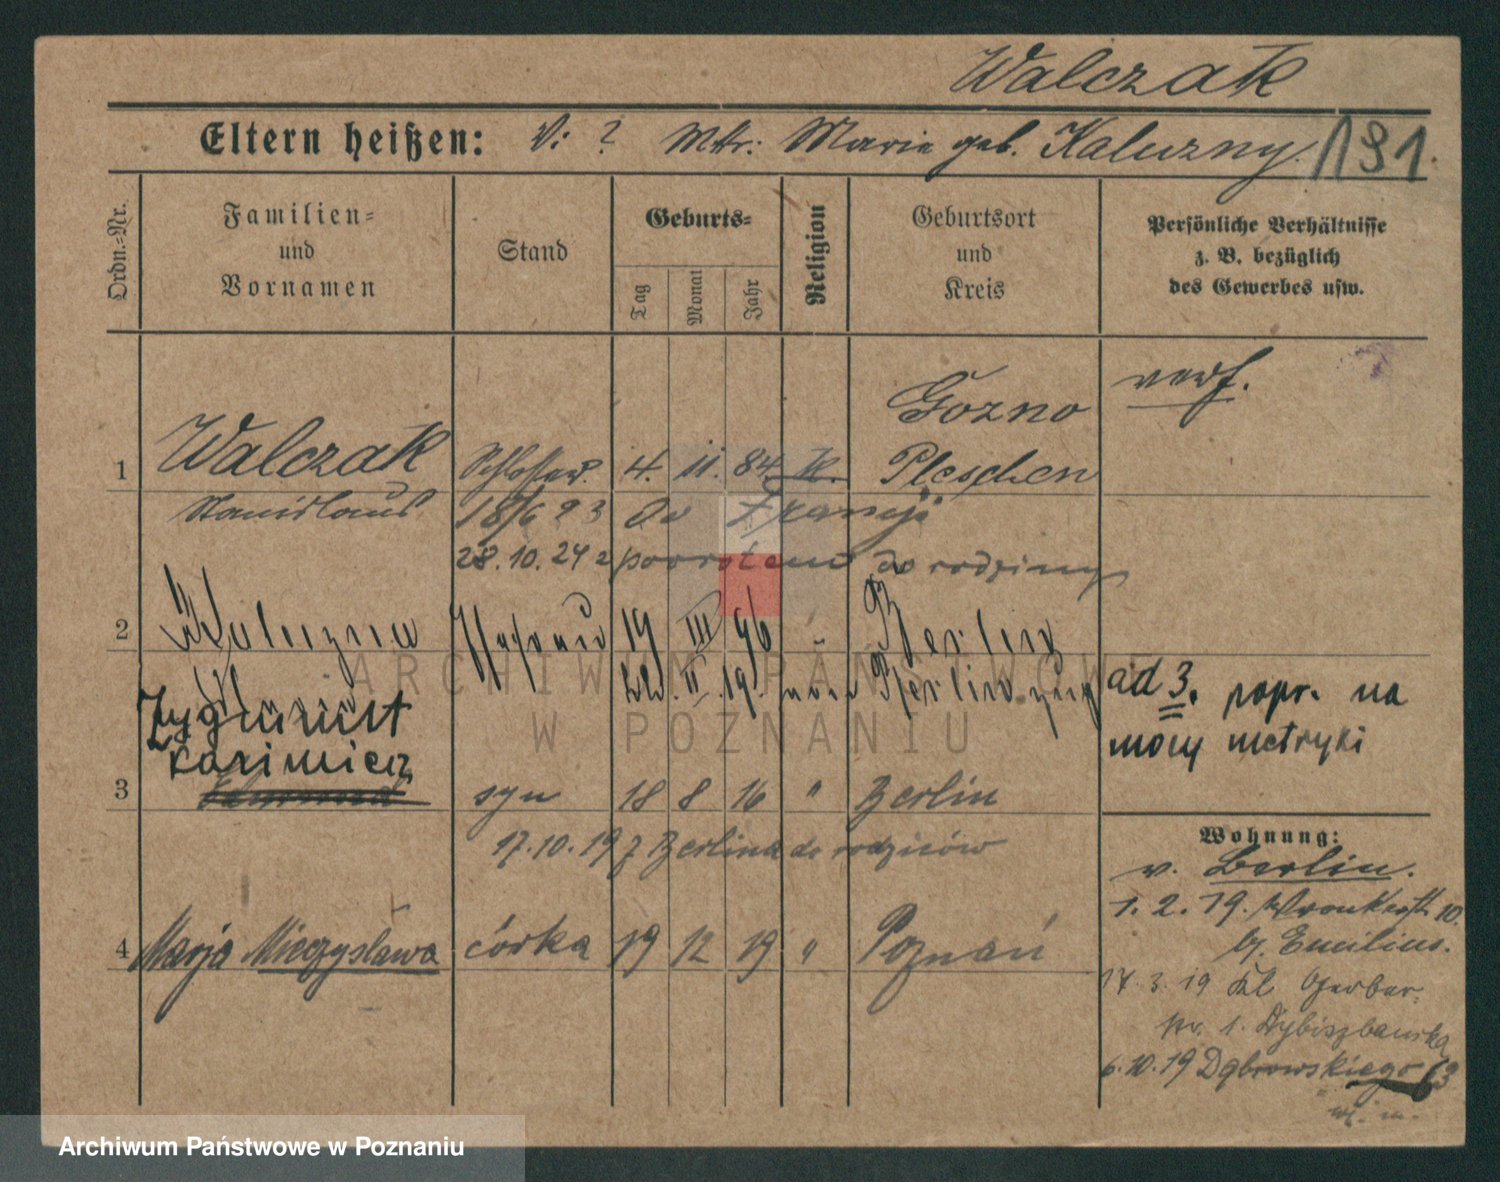 Walczak
Eltern heißen: V: ? Mttr: Marie geb. Kaluzny. 191.
Ordn.=Nr.
Familien=
und
Vornamen
Stand
Geburts=
Tag
Monat
Jahr
Religion
Geburtsort
und
Kreis
Persönliche Verhältnisse
z. B. bezüglich
des Gewerbes usw.
verh.
Gozno
1 Walczak Schlosser. 4. 11. 84. K. Pleschen
Stanislaus 18/6 23 Do Francji
28.10.24 z powrotem do rodziny
2 19 III 96 " Berlin
22. II. 19. Berlin
ad 3. popr. na
mocy metryki
Zygmunt
Kazimierz
3 syn 18 8 16 " Berlin
17.10.19 z Berlina do rodziców
4 Marja Mieczysława córka 19 12 19 " Poznań
Wohnung:
v. Berlin.
1. 2. 19. Wronkerstr. 10.
b/. Emilius.
17. 3. 19 Kl Gerber
1.
6.10.19 Dąbrowskiego
ARCHIWUM PAŃSTWOWE
W POZNANIU
Archiwum Państwowe w Poznaniu